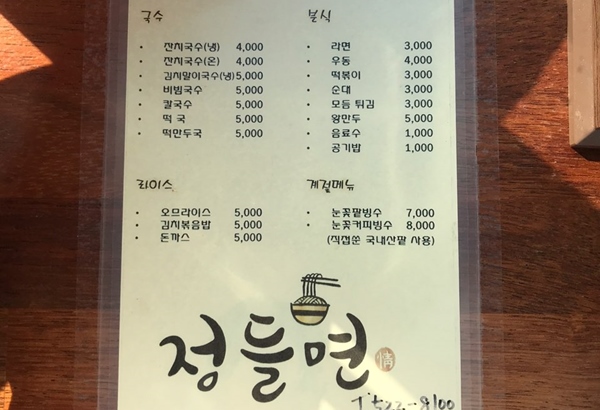 국수
• 잔치국수(냉) 4,000
• 잔치국수(온) 4,000
• 김치말이국수(냉) 5,000
• 비빔국수 5,000
• 칼국수 5,000
• 떡 국 5,000
• 떡만두국 5,000
분식
• 라면 3,000
• 우동 4,000
• 떡볶이 3,000
• 순대 3,000
• 모듬 튀김 3,000
• 왕만두 5,000
• 음료수 1,000
• 공기밥 1,000
라이스
• 오므라이스 5,000
• 김치볶음밥 5,000
• 돈까스 5,000
계절메뉴
• 눈꽃팥빙수 7,000
• 눈꽃커피빙수 8,000
(직접쑨 국내산팥 사용)
정들면
情
T.522-8100